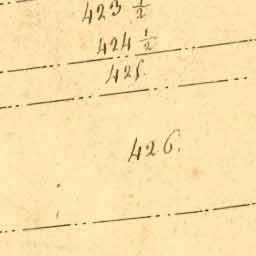 423 1/2
424 1/2
425.
426.